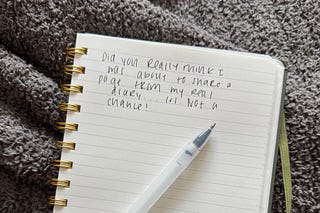 Did you really think I
was about to share a
page from my real
diary... lol Not a
chance!